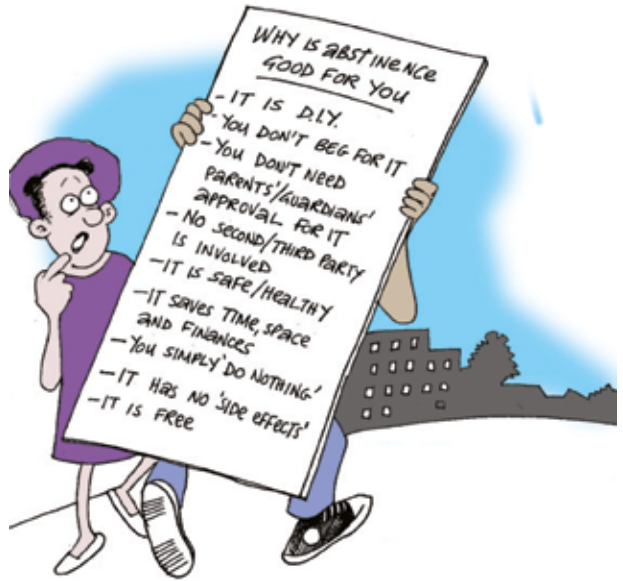 WHY IS ABSTINENCE
GOOD FOR YOU
- IT IS D.I.Y.
- YOU DON'T BEG FOR IT
- YOU DON'T NEED
PARENTS'/GUARDIANS'
APPROVAL FOR IT
- NO SECOND/THIRD PARTY
IS INVOLVED
- IT IS SAFE/HEALTHY
- IT SAVES TIME, SPACE
AND FINANCES
- YOU SIMPLY 'DO NOTHING'
- IT HAS NO 'SIDE EFFECTS'
- IT IS FREE